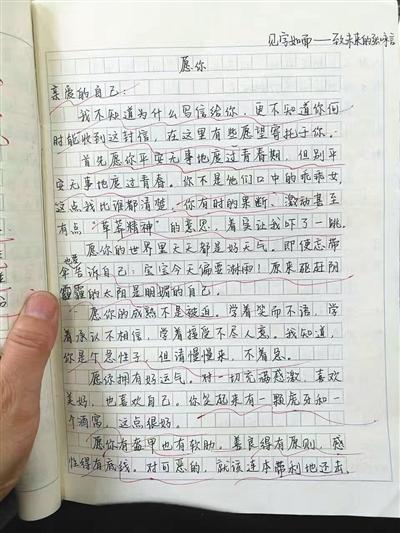 见字如面——致未来的张味信
愿你
亲爱的自己：
我不知道为什么写信给你，更不知道你何
时能收到这封信，在这里有些愿望寄托于你。
首先愿你平安无事地度过青春期，但别平
安无事地度过青春。你不是他们口中的乖乖女，
这点我比谁都清楚。你有时的果断、激动甚至
有点“草莽精神”的意思，着实让我吓了一跳。
愿你的世界里天天都是好天气。即便忘带
也要
伞告诉自己：宝宝今天偏要淋雨！原来驱赶阴
霾的太阳是明媚的自己。
愿你的成熟不是被迫。学着笑而不语，学
着承认不相信，学着接受不尽人意。我知道，
你是个急性子，但请慢慢来，不着急。
愿你拥有好运气。对一切充满感激，喜欢
美好，也喜欢自己。你笑起来有一颗虎牙和一
个酒窝，这点很好。
愿你有盔甲也有软肋。善良得有原则，感
性得有底线。对可恶的，就该连本带利地还击，